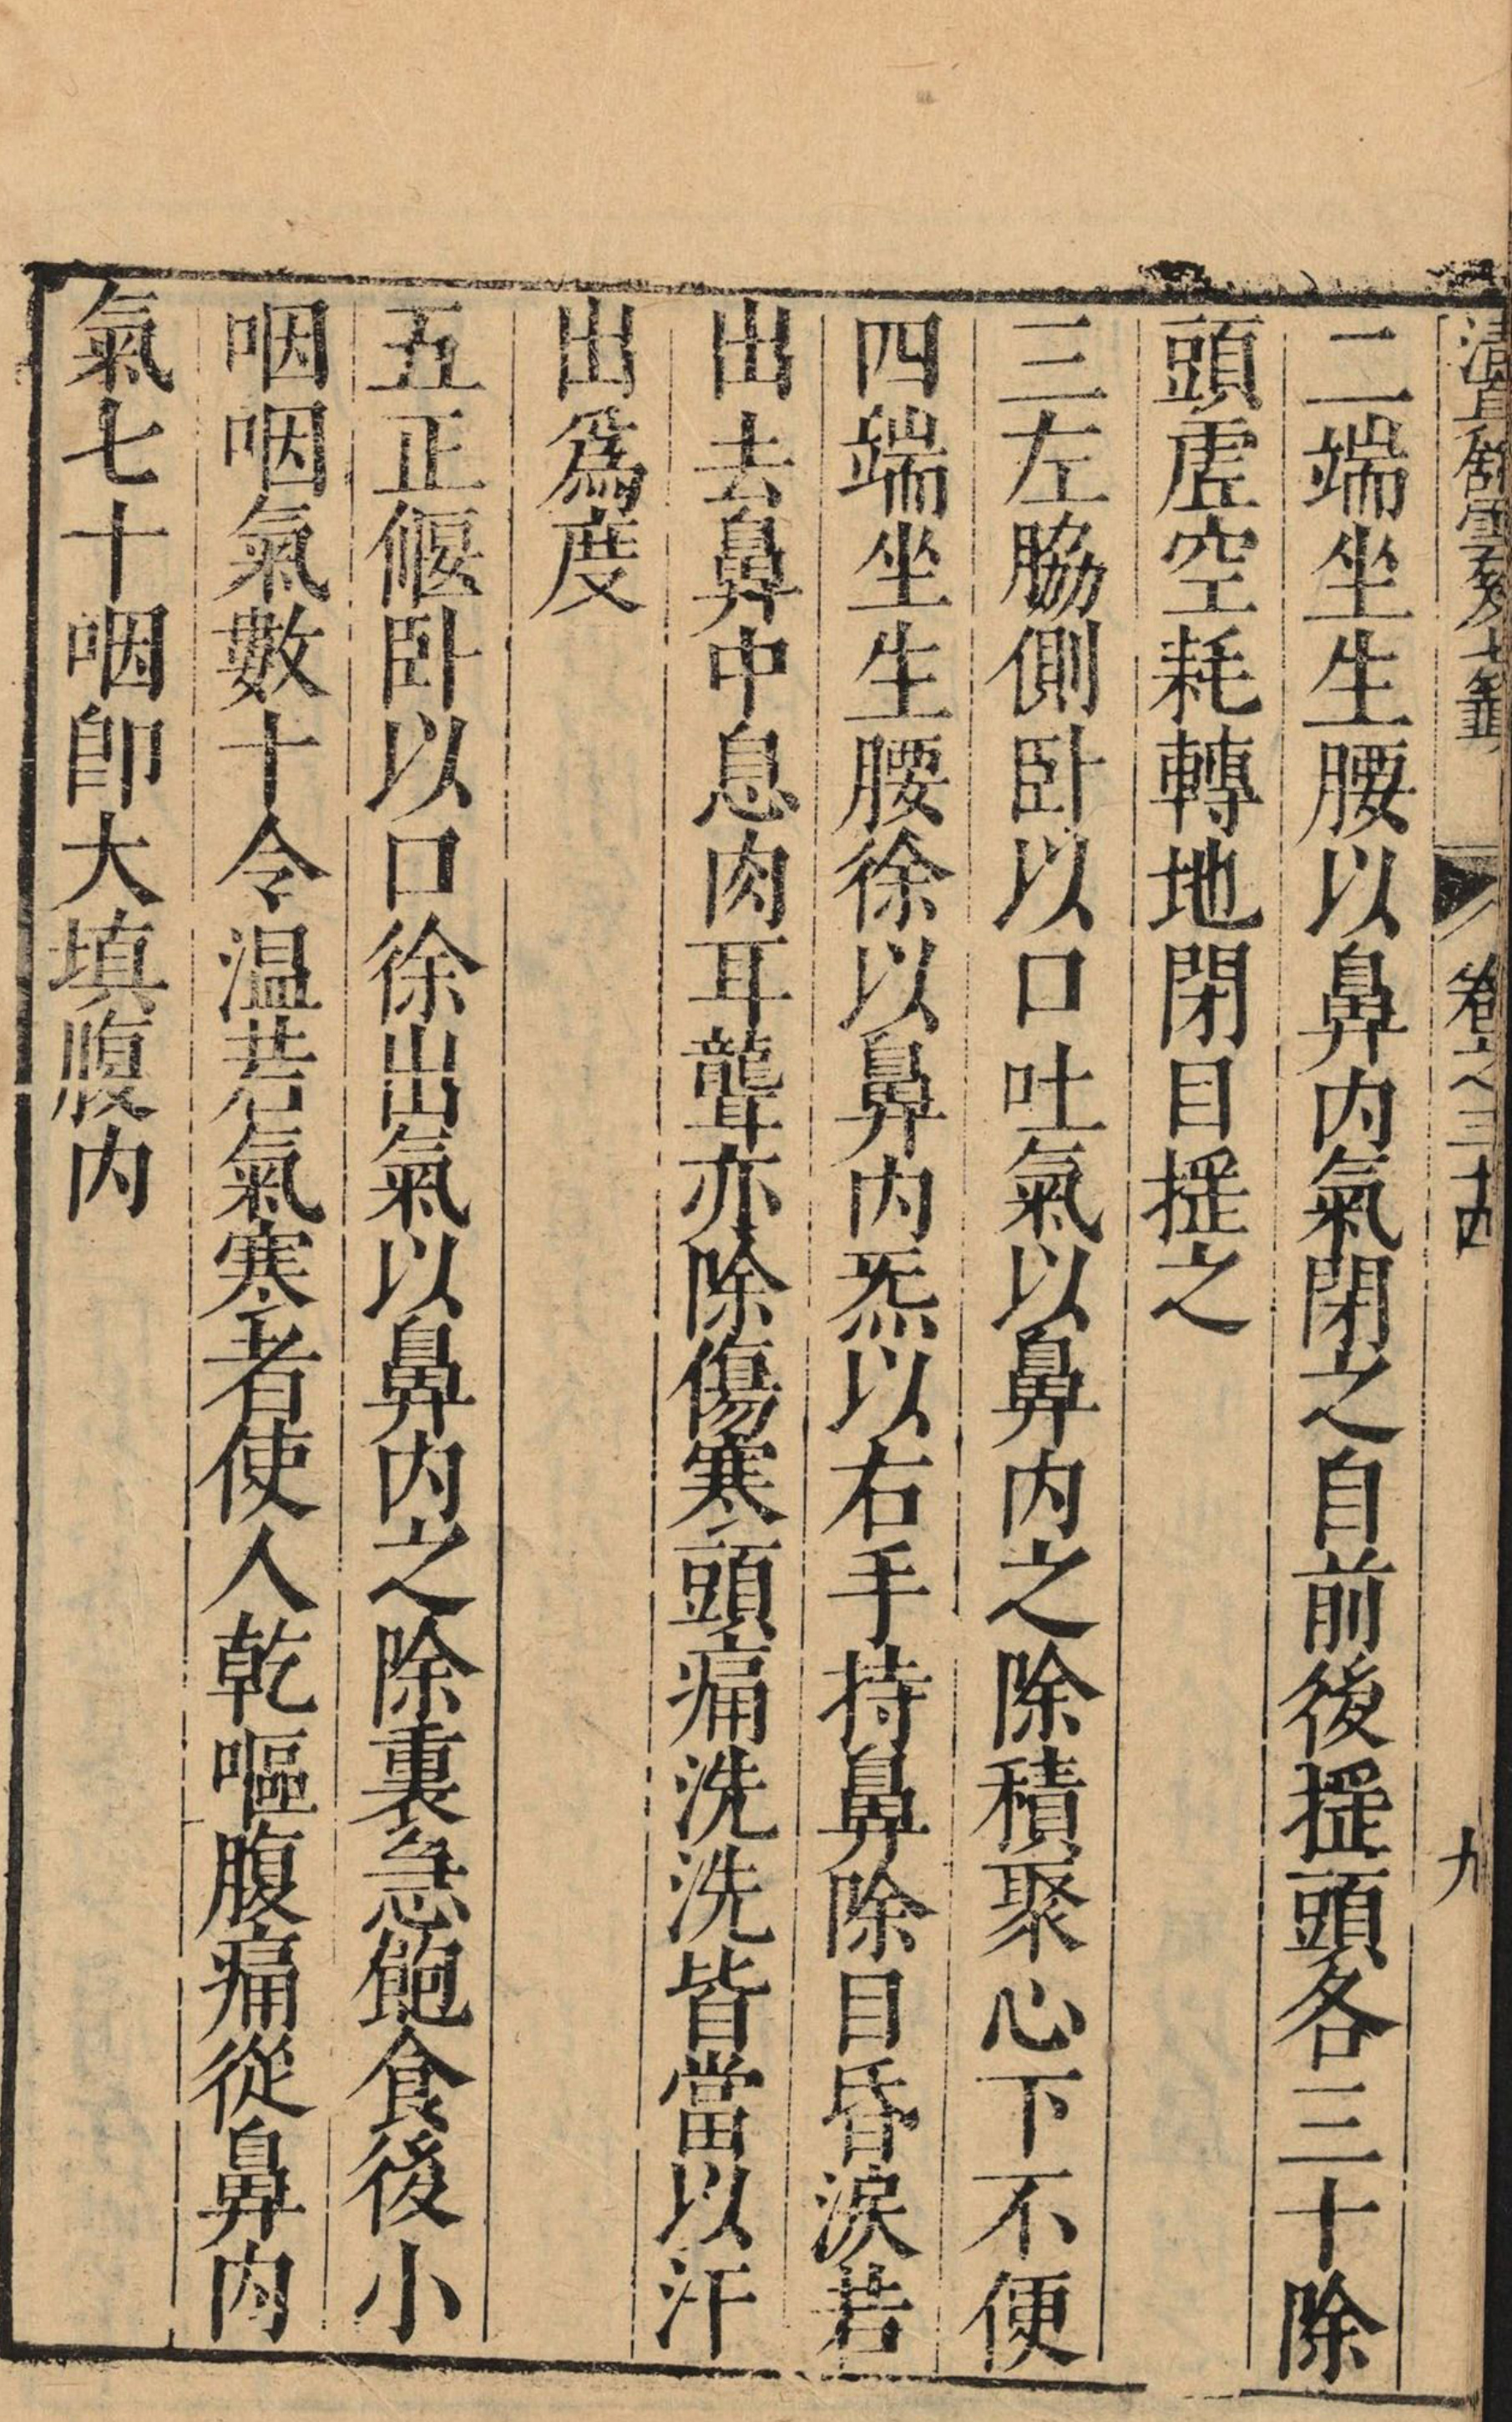 卷之三十四
九
二端坐生腰以鼻内氣閉之自前後揺頭各三十除
頭虗空耗轉地閉目揺之
三左脇側卧以口吐氣以鼻内之除積聚心下不便
四端坐生腰徐以鼻内炁以右手持鼻除目昏淚若
出去鼻中息肉耳聾亦除傷寒頭痛洗洗皆當以汗
出爲度
五正偃卧以口徐出氣以鼻内之除裏急飽食後小
咽咽氣數十令温若氣寒者使人乾嘔腹痛從鼻内
氣七十咽即大填腹内